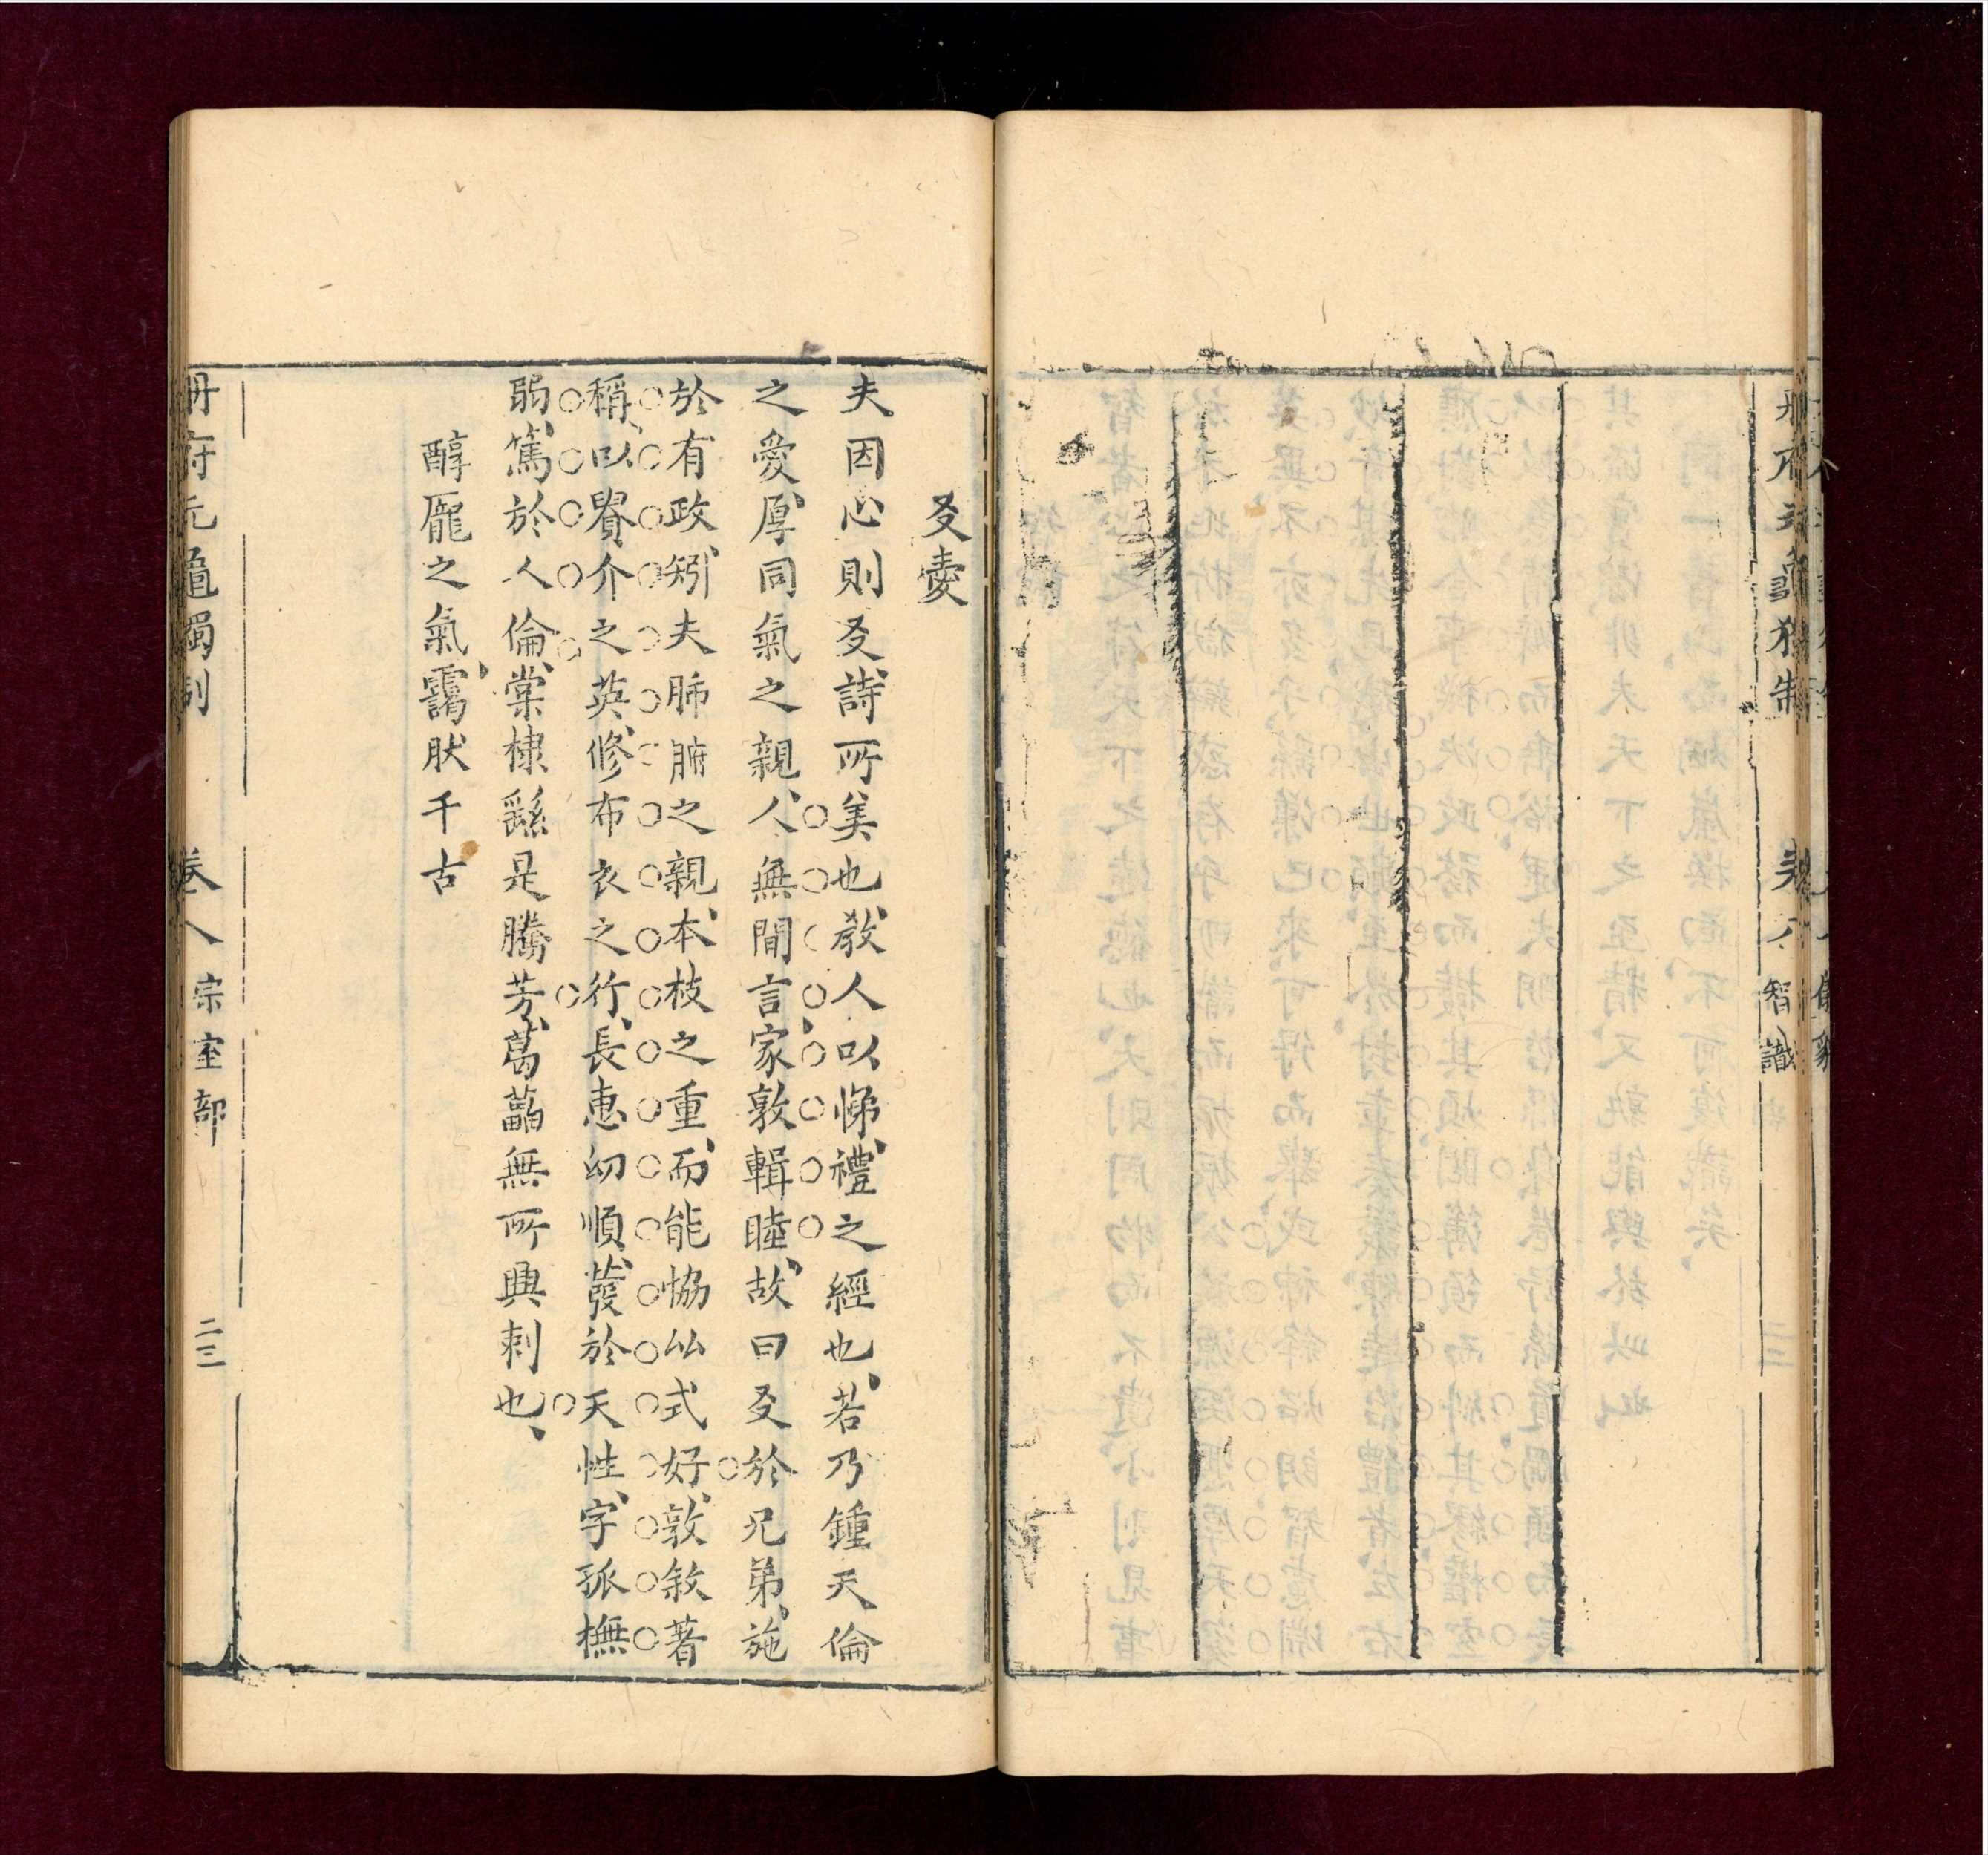 冊府元龜獨制 卷八 智識
叐愛
夫因心則叐詩所美也教人以悌禮之經也若乃鍾天倫
之愛厚同氣之親人無間言家敦輯睦故曰叐於兄弟施
於有政矧夫肺腑之親本枝之重而能協比式好敦敘著
稱以貴介之英修布衣之行長惠幼順發於天性字孤撫
弱篤於人倫棠棣繇是騰芳葛藟無所興刺也
醇龐之氣靄肰千古
冊府元龜獨制 卷八 宗室部 二三